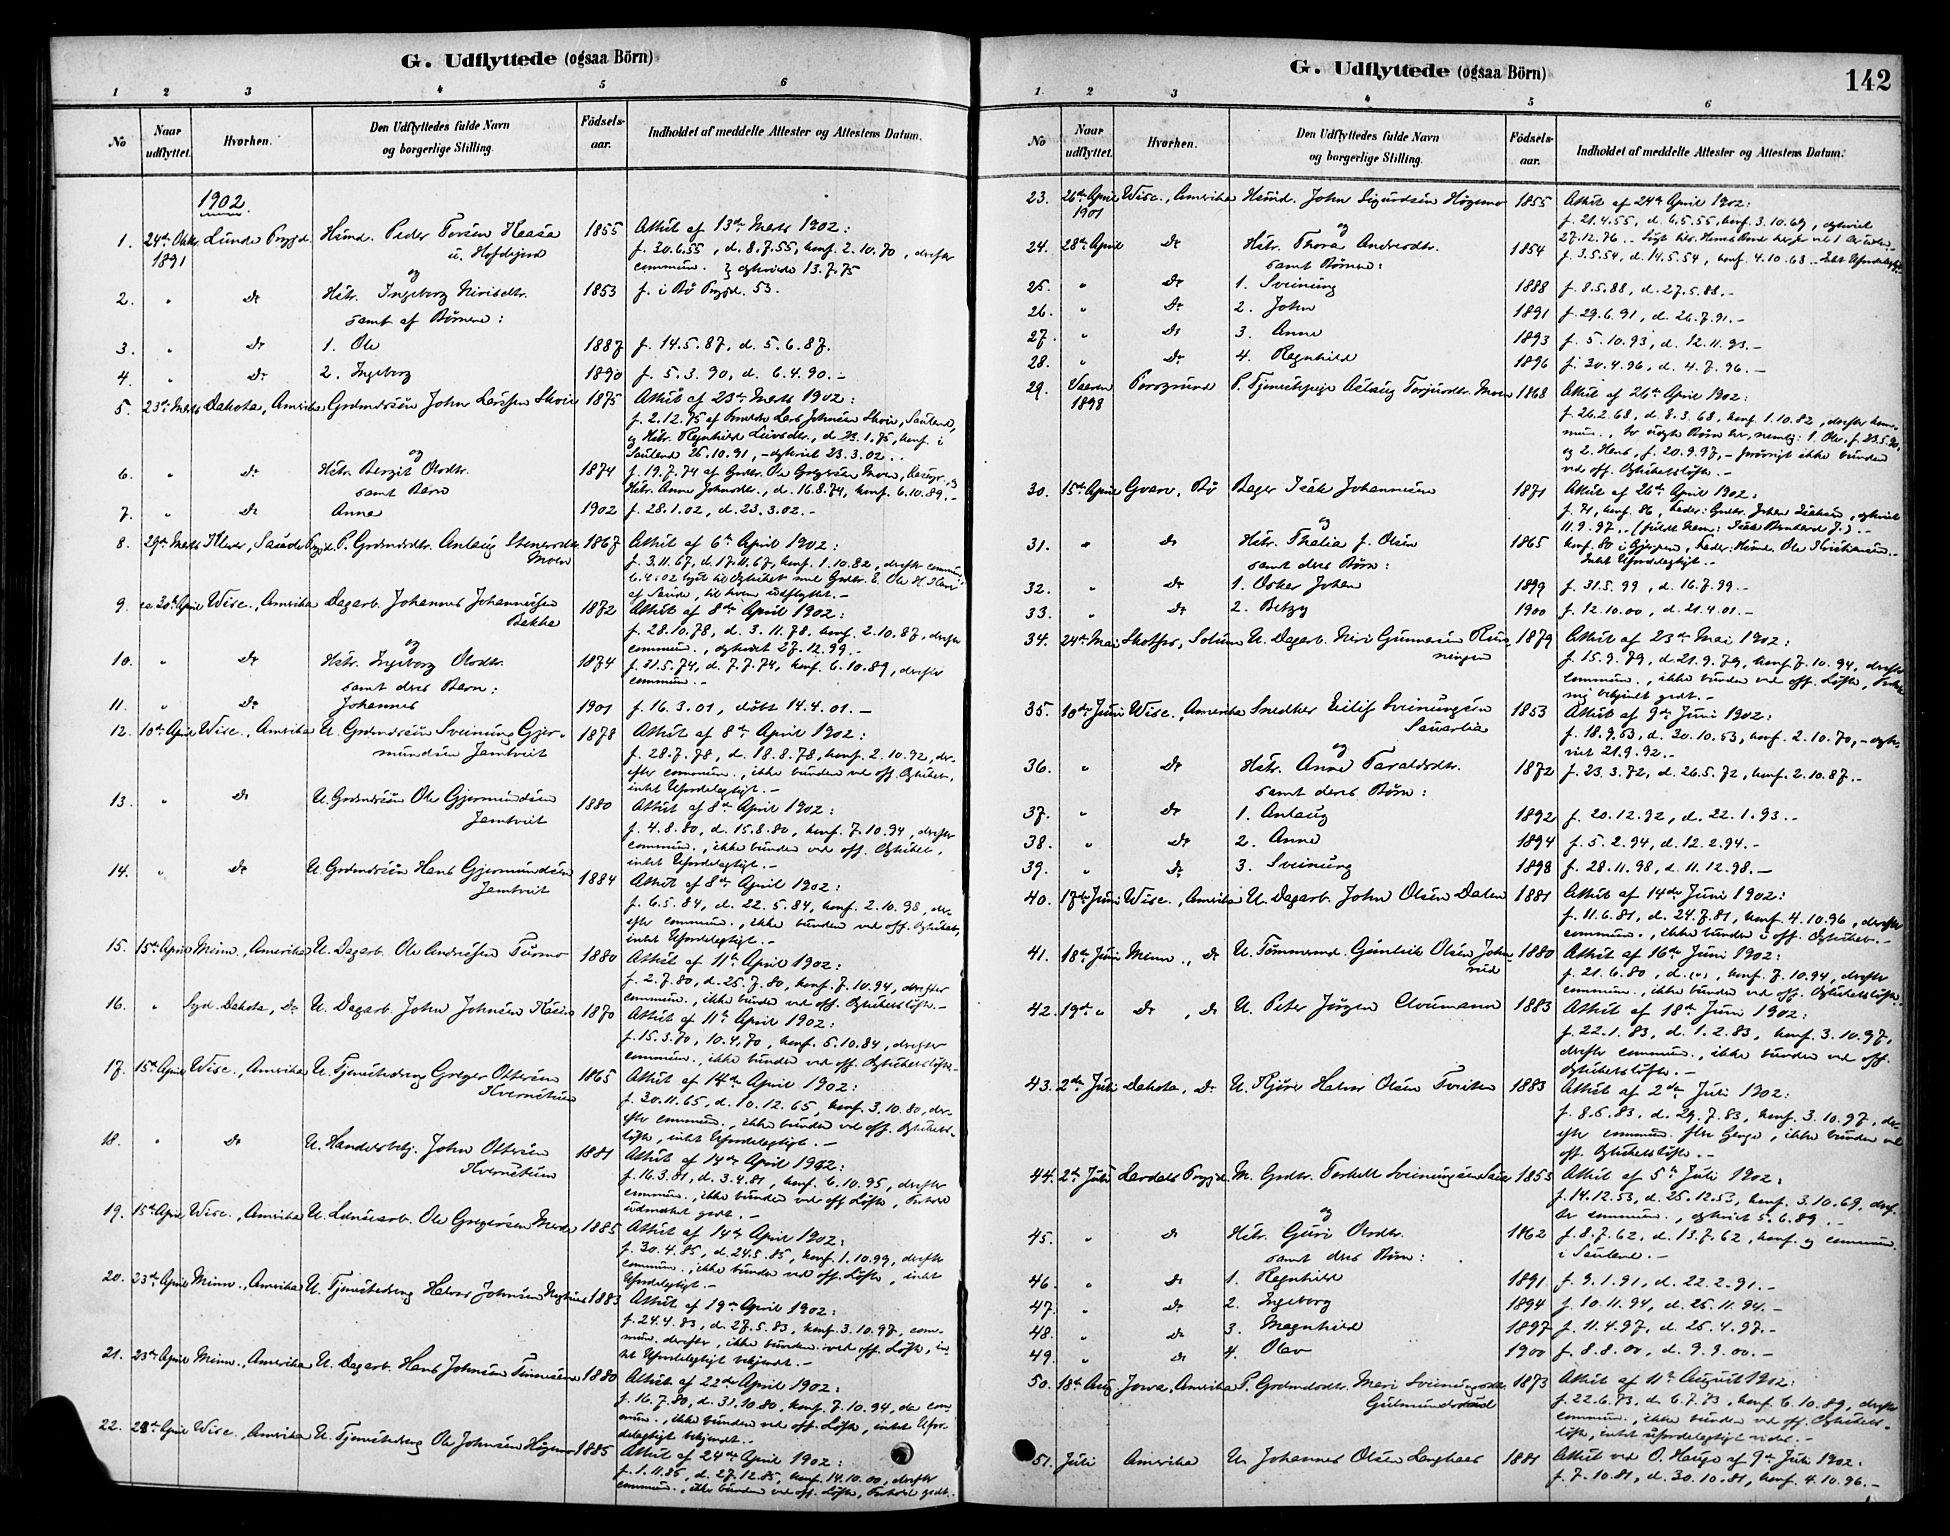 G. Udflyttede (ogsaa Börn)
1 2 3 4 5 6
No
Naar udflyttet.
Hvorhen.
Den Udflyttedes fulde Navn og borgerlige Stilling.
Födsels-aar.
Indholdet af meddelte Attester og Attestens Datum.
1902.
1. 24de Oktbr. Lunde Prgjd. Husmd. Peder Torsen Haasa 1855 Attest af 13de Marts 1902:
1891 u. Hofdejord f. 20.6.55, d. 8.7.55, konf. 2.10.70, derefter
commun. } ægtviede 13.7.75
og
2. " Do Hstr. Ingeborg Nirisdtr. 1853 f. i Bø Prgjd. 53.
samt af Børnene:
3. " Do 1. Ole 1887 f. 14.5.87, d. 5.6.87.
4. " Do 2. Ingeborg 1890 f. 5.3.90, d. 6.4.90.-
5. 23de Marts Dakota, Amerika Grdmdssøn John Larssen Skoie 1875 Attest af 23de Marts 1902:
f. 2.12.75 af Larb Johnsen Skoie, Sauland,
og Hstr. Regnhild Leivsdtr., konf. i
Sauland 25.10.91, - ægtviet 23.3.02.-
og
6. " Do Hstr. Bergit Olsdtr. 1874 f. 19.7.74 af Grdbr. Ole Gregersen Moen,
samt Barn Hstr. Anne Johnsdtr., d. 16.8.74, konf. 6.10.89.-
7. " Do Anne 1902 f. 28.1.02, d. 23.3.02.-
8. 29de Marts Klever, Saude Prgjd. P. Grdmdsdtr. Anlaug Steners 1867 Attest af 6te April 1902:
Moen f. 3.11.67, d. 17.11.67, konf. 1.10.82, derefter commun.
af Saude, til hvem udflyttet.-
9. ca 30te April Wisc., Amerika Dagarb. Johannes Johannessen 1872 Attest af 8de April 1902:
Bekka f. 28.10.78, d. 3.11.78, konf. 2.10.87, derefter
commun., ægtviet 27.12.99.-
og
10. " Do Hstr. Ingeborg Olsdtr. 1874 f. 21.5.74, d. 7.7.74, konf. 6.10.89, derefter
samt deres Barn: commun.-
11. " Do Johannes 1901 f. 16.3.01, døbt 14.4.01.-
12. 10de April Wisc., Amerika U. Grdmdssøn Sveinung Gjer- 1878 Attest af 8de April 1902:
mundsen Jamtveit f. 28.7.78, d. 18.8.78, konf. 2.10.92, der-
efter commun., ikke bunden ved off. Ægteskab,
intet Ufordelagtigt.-
13. " Do U. Grdmdssøn Ole Gjermundsen 1880 Attest af 8de April 1902:
Jamtveit f. 4.8.80, d. 15.8.80, konf. 7.10.94, derefter
commun., ikke bunden ved off. Ægteskab,
intet Ufordelagtigt.-
14. " Do U. Grdmdssøn Hans Gjermundsen 1884 Attest af 8de April 1902:
Jamtveit f. 6.5.84, d. 22.5.84, konf. 2.10.98, der-
efter commun., ikke bunden ved off. Ægteskab,
intet Ufordelagtigt.-
15. 15de April Minn., Amerika U. Dagarb. Ole Andersen Turmo 1880 Attest af 11te April 1902:
f. 2.7.80, d. 25.7.80, konf. 7.10.94, derefter
commun., ikke bunden ved off. Ægteskabsløfte.-
16. " Syd Dakota, Do U. Dagarb. John Johnsen 1870 Attest af 11te April 1902:
f. 15.3.70, 10.4.70, konf. 5.10.84, derefter
commun., ikke bunden ved off. Ægteskabsløfte.-
17. 15de April Wisc., Amerika U. Tjenestedreng Greger Ottersen 1865 Attest af 14de April 1902:
Kvernstuen f. 30.11.65, d. 10.12.65, konf. 3.10.80, der-
efter commun., ikke bunden ved off. Ægteskabs-
løfte, intet Ufordelagtigt.-
18. " Do U. Handelsbetj. John Ottersen 1881 Attest af 14de April 1902:
Kvernstuen f. 16.3.81, d. 3.4.81, konf. 6.10.95, derefter
commun., ikke bunden ved off. Løfte, Forhold
udmærket godt.-
19. 15de April Wisc., Amerika U. Ole Gregersen 1885 Attest af 14de April 1902:
f. 30.4.85, d. 24.5.85, konf. 1.10.99, derefter
commun., ikke bunden ved off. Løfte, intet
Ufordelagtigt.-
20. 23de April Minn., Amerika U. Tjenestedreng Halvor Johnsen 1883 Attest af 19de April 1902:
f. 24.4.83, d. 27.5.83, konf. 3.10.97, com-
mun. derefter, ikke bunden ved off. Løfte, in-
tet Ufordelagtigt bekjendt.-
21. 23de April Minn., Amerika U. Dagarb. Hans Johnsen 1880 Attest af 22de April 1902:
f. 16.7.80, d. 31.10.80, konf. 7.10.94, der com-
mun., ikke bunden ved off. Løfte, intet Ufor-
delagtigt bekjendt.-
22. 28de April Wisc., Amerika U. Tjenestedreng Ole Johnsen Høgemo 1885 Attest af 24de April 1902:
f. 1.11.85, d. 27.12.85, konf. 14.10.00, derefter
commun., ikke bunden ved off. Løfte, Forhold godt.
G. Udflyttede (ogsaa Börn)
142
1. 2 3 4 5 6
No
Naar udflyttet.
Hvorhen.
Den Udflyttedes fulde Navn og borgerlige Stilling.
Födsels-aar.
Indholdet af meddelte Attester og Attestens Datum.
23. 26de April Wisc., Amerika Husmd. John Sigurdsen Høgemo 1855 Attest af 24de April 1902:
1901 f. 21.4.55, d. 6.5.55, konf. 3.10.69, ægtviet
27.12.76.
og
24. 28de April Do Hstr. Thora Andersdtr. 1854 f. 3.5.54, d. 14.5.54, konf. 4.10.68.- Intet Ufordelagtigt
samt Børnene:
25. " Do 1. Sveinung 1888 f. 8.5.88, d. 27.5.88.-
26. " Do 2. John 1891 f. 29.6.91, d. 26.7.91.-
27. " Do 3. Anne 1893 f. 5.10.93, d. 12.11.93.-
28. " Do 4. Regnhild 1896 f. 30.4.96, d. 4.7.96.-
29. Vaaren Porsgrund P. Tjenestepige Aslaug Torjusdtr. Moen 1868 Attest af 26de April 1902:
1898 f. 26.2.68, d. 8.3.68, konf. 1.10.82, derefter kom-
mun., to uægte Børn her, nemlig: 1. Ole, f. 23.5.90,
og 2. Hans, f. 20.9.97,- forøvrigt ikke bunden
ved off. Ægteskabsløfte.-
30. 15de April Gvarv, Bø Bager Isak Johannesen 1871 Attest af 26de April 1902:
f. 71, konf. 86, Fader: Grdbr. Johan Isaksen, ægtviet
11.9.97.- (fulde Navn: Isak Bernhard J.).-
og
31. " Do Hstr. Thalia f. Olsen 1865 konf. 80 i Gjerpen, Fader: Husmd. Ole Kristiansen.-
samt deres Børn: Intet Ufordelagtigt.-
32. " Do 1. Oskar Johan 1899 f. 31.5.99, d. 16.7.99.-
33. " Do 2. Betzy 1900 f. 12.10.00, d. 21.4.01.-
34. 24de Mai Skotfos, Solum U. Dagarb. Niri Gunnarsen Run- 1879 Attest af 23de Mai 1902:
ningen f. 15.9.79, d. 21.9.79, konf. 7.10.94, derefter
commun., ikke bunden ved off. Løfte, Forhold
mig bekjendt godt.-
35. 10de Juni Wisc., Amerika Snedker Eilif Sveinungsen 1853 Attest af 9de Juni 1902:
Sauarlia f. 18.9.53, d. 30.10.53, konf. 2.10.70, - ægt-
viet 21.9.92.-
og
36. " Do Hstr. Anne Taraldsdtr. 1872 f. 23.3.72, d. 26.5.72, konf. 2.10.87.-
samt deres Børn:
37. " Do 1. Anlaug 1892 f. 20.12.92, d. 22.1.93.-
38. " Do 2. Anne 1894 f. 5.2.94, d. 12.2.94.-
39. " Do 3. Sveinung 1898 f. 28.11.98, d. 11.12.98.-
40. 17de Juni Wisc., Amerika U. Dagarb. John Olsen Dalen 1881 Attest af 14de Juni 1902:
f. 11.6.81, d. 24.7.81, konf. 4.10.96, derefter
commun., ikke bunden i off. Ægteskab.-
41. 18de Juni Minn., Do U. Tømmermd. Gunleik Olsen John- 1880 Attest af 16de Juni 1902:
rud f. 21.6.80, d. ("), konf. 7.10.94, derefter
commun., ikke bunden ved off. Ægteskabsløfte.-
42. 19de " Do, Do U. Peter Jørgen Cloumann 1883 Attest af 18de Juni 1902:
f. 22.1.83, d. 1.2.83, konf. 3.10.97,
derefter commun., ikke bunden ved off.
Ægteskabsløfte.-
43. 2de Juli Dakota, Do U. Halvor Olsen Tveiten 1883 Attest af 2de Juli 1902:
f. 8.6.83, d. 29.7.83, konf. 3.10.97, der-
efter commun. flere Gange, ikke bunden ved
off. Ægteskabsløfte.-
44. 2de Juli Lardals Prgjd. M. Grdbr. Torkell Sveinungsen 1853 Attest af 5te Juli 1902:
f. 14.12.53, d. 25.12.53, konf. 3.10.69, deref-
ter commun., ægtviet 5.6.89.-
og
45. " Do Hstr. Guri Olsdtr. 1862 f. 8.7.62, d. 13.7.62, konf. og commun.
samt deres Børn: i Sauland.-
46. " Do 1. Regnhild 1891 f. 9.1.91, d. 22.2.91.-
47. " Do 2. Ingeborg 1894 f. 10.11.94, d. 25.11.94.-
48. " Do 3. Magnhild 1897 f. 11.4.97, d. 25.4.97.-
49. " Do 4. Olav 1900 f. 8.8.00, d. 9.9.00.-
50. 18de Aug Jowa, Amerika P. Grdmdsdtr. Mari Sveinungsdtr. 1873 Attest af 11te August 1902:
f. 22.6.73, d. 6.7.73, konf. 6.10.89, derefter
commun., ikke bunden ved off. Ægteskabs-
løfte, intet ufordelagtigt vides.-
51. Juli Amerika U. Johannes Olsen Langhaas 1881 Attest ved O. Hauge af 9de Juli 1902:
f. 7.10.81, d. 30.10.81, konf. 4.10.96.-